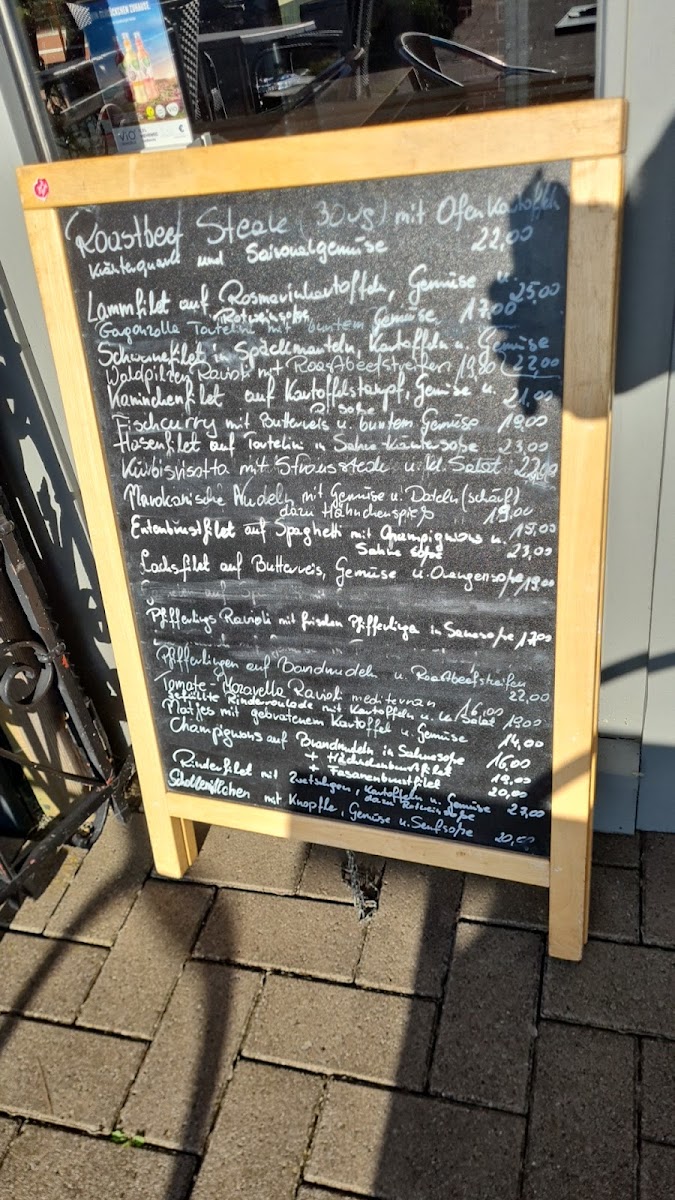 ZUHAUSE
ViO
Roastbeef Steak (300g) mit Ofenkartoffeln
Kräuterquark und Saisonalgemüse 22,00
Lammfilet auf Rosmarinkartoffeln, Gemüse u. 25,00
Rotweinsoße
Gorgonzolla Tortelini mit buntem Gemüse 17,00
Schweinefilet in Speckmanteln, Kartoffeln u. Gemüse
22,00
Waldpilzen Ravioli mit Roastbeefstreifen 19,00
Kaninchenfilet auf Kartoffelstampf, Gemüse u. 21,00
soße
Fischcurry mit Butterreis u. buntem Gemüse 19,00
Hasenfilet auf Tortelini in Sahne-Kräutersoße 23,00
Kürbisrisotto mit Strausssteak u. kl. Salat
Marokanische Nudeln mit Gemüse u. Dateln (scharf)
dazu Hähnchenspieß 19,00
Entenbrustfilet auf Spaghetti mit Champignons u.
Sahne soße 23,00
Lachsfilet auf Butterreis, Gemüse u. Orangensoße 19,00
Pfifferlings Ravioli mit frischen Pfifferlinge in Sahnesoße 17,00
Pfifferlingen auf Bandnudeln u. Roastbeefstreifen
22,00
Tomate-Mozarella Ravioli mediterran 16,00
gefüllte Rinderroulade mit Kartoffeln u. kl. Salat 19,00
Matjes mit gebratenem Kartoffel u. Gemüse 14,00
Champignons auf Brandnudeln in Sahnesoße 16,00
+ Hähnchenbrustfilet 19,00
+ Fasanenbrustfilet 20,00
Rinderfilet mit Zwetschgen, Kartoffeln u. Gemüse
dazu Rotweinsoße 27,00
Schollenröllchen mit Knöpfle, Gemüse u. Senfsoße 20,00